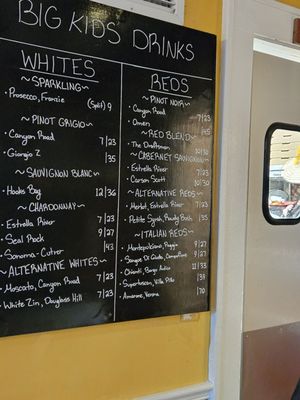 BIG KIDS DRINKS
WHITES
~SPARKLING~
• Prosecco, (Split) 9
~PINOT GRIGIO~
• Canyon Road 7|23
• Giorgio Z |35
~SAUVIGNON BLANC~
• Hooks Bay 12|36
~CHARDONNAY~
• Estrella River 7|23
• Seal Rock 9|27
• Sonoma-Cutrer |43
~ALTERNATIVE WHITES~
• Moscato, Canyon Road 7|23
• White Zin, Douglass Hill 7|23
REDS
~PINOT NOIR~
• Canyon Road 7|23
• |45
~RED BLEND~
• The 10|30
~CABERNET SAUVIGNON~
• Estrella River 7|23
• Carson Scott 10|30
~ALTERNATIVE REDS~
• Merlot, Estrella River 7|23
• Petite Syrah, |35
~ITALIAN REDS~
• Montepulciano, 9|27
• 9|27
• Chianti, 11|33
• Supertuscan, Villa |39
• Amarone, |70